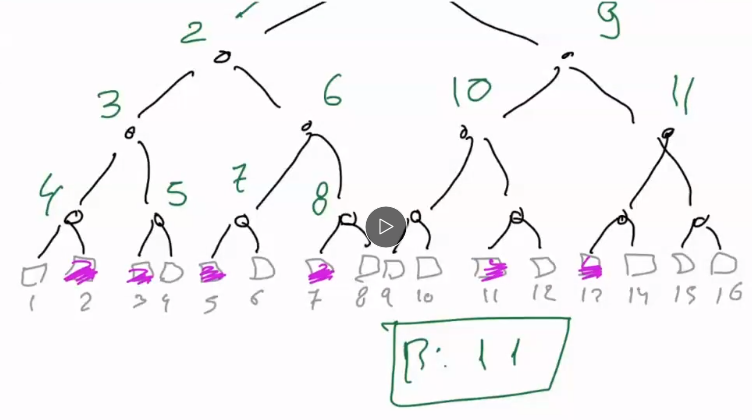 2 9
3 6 10 11
4 5 7 8
1 2 3 4 5 6 7 8 9 10 11 12 13 14 15 16
B: 11